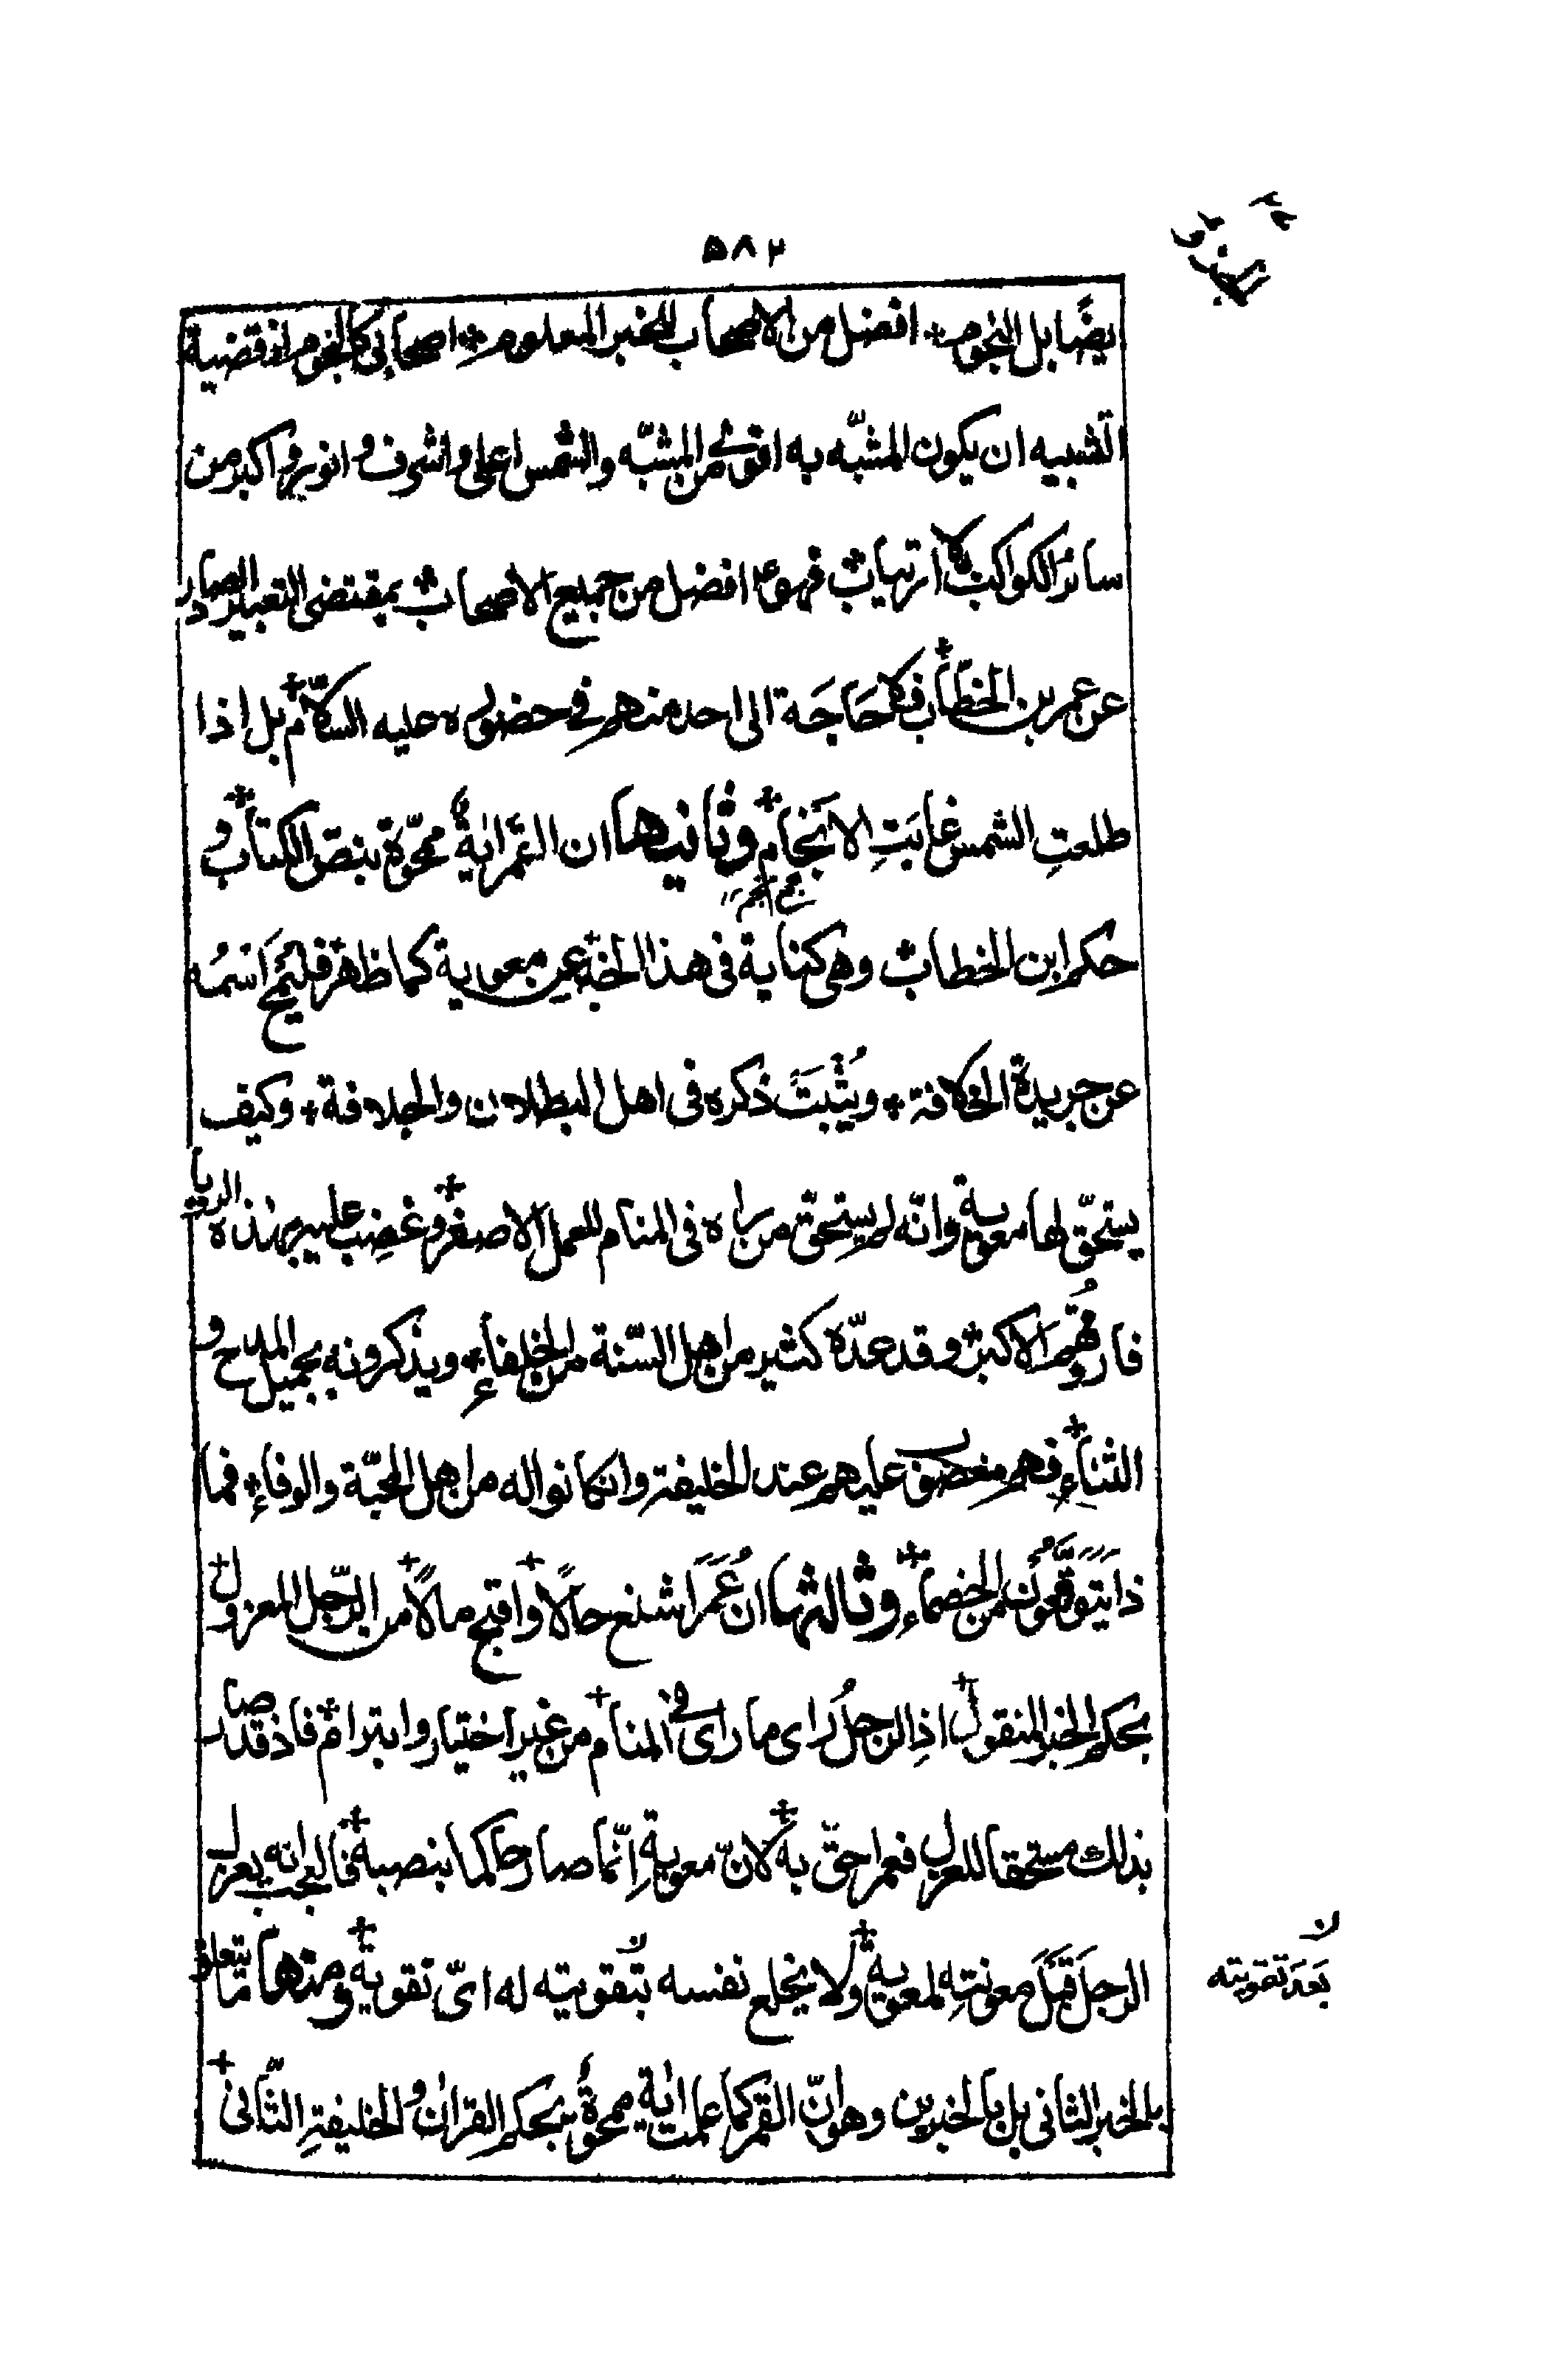 ۵۸۲
يضا بل النجوم + افضل من الاصحاب للخبر المعلوم + اصحابى كالنجوم اذ قضية
التشبيه ان يكون المشبّه به اقوى من المشبّه والشمس اعلى واشرف وانور واكبر من
سائر الكواكب لا ارتياب فهو ع افضل من جميع الاصحاب بمقتضى التعبير الصادر
عن عمر بن الخطاب + فلا حَاجَة الى احد منهم فى حضوره عليه السلام + بل اذا
طلعتِ الشمس غابَتِ الانجام + وثانيها ان القمر ايةٌ ممحوّة بنص الكتاب + و
جمع نجم ١٢
حكم ابن الخطاب وهى كناية فى هذا الخبر عن معوية كما ظهر فليُمح اسمُه
عن جريدة الخلافة + ويُثْبَتَ ذكره فى اهل البطلان والجلافة + وكيف
يستحقّ لها معوية وانّه لم يستحق من راه فى المنام للعمل الاصغر وغضِب عليه بهذه الرويا
فاروقُهم الاكبر وقد عدّه كثير من اهل السّنة من الخلفاء + ويذكرونه بجميل المدح و
الثناء + فهم مغضوب عليهم عند الخليفة وان كانوا له من اهل المحبّة والوفاء + فما
ذا يَتَوقَّعُونَ من الخصماء + وثالثها ان عُمَرَ اشنع حالًا + واقبح مالًا + من الرّجل المعزول +
بحكم الخبر المنقول + اذِ الرجلُ راى ما راى فى المنام + من غير اختيار وابترام + فاذ قد صار
بذلك مستحقا للعزل فعمر احقّ به + لانّ معوية اِنّما صار حاكما بنصبه + فالعجب انه يعزل
الرجل قَبْلَ معونتِه لمعوية + ولا يخلع نفسه بتقويته له اىّ تقوية + ومنها ما يتعلق
ن
بَعدَ تقويته
بالخبر الثانى بل بالخبرين وهو انّ القمر كما علمت اية ممحوةٌ بحكم القران والخليفةِ الثّانى +